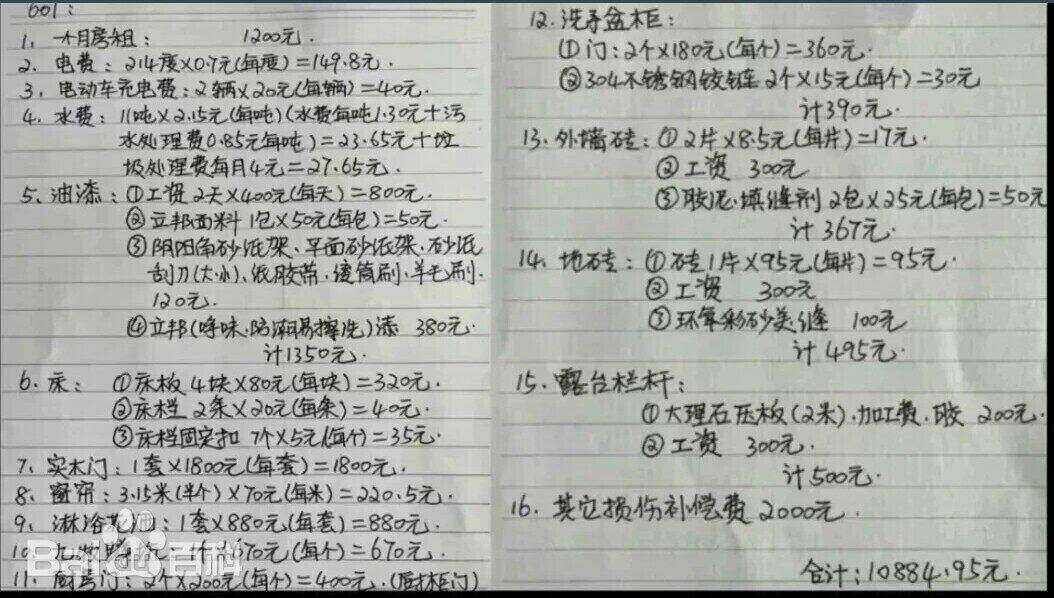 601：
1、一个月房租： 1200元．
2、电费：214度×0.7元(每度)=149.8元．
3、电动车充电费：2辆×20元(每辆)=40元．
4、水费：11吨×2.15元(每吨)(水费每吨1.30元+污
水处理费0.85元每吨)=23.65元+垃
圾处理费每月4元=27.65元．
5、油漆：①工资2天×400元(每天)=800元．
②立邦面料1包×50元(每包)=50元．
③阴阳角砂纸架、平面砂纸架、砂纸
刮刀(大小)、纸胶带、滚筒刷、羊毛刷．
120元．
④立邦(净味、防潮易擦洗)漆 380元．
计1350元．
6、床： ①床板 4块×80元(每块)=320元．
②床栏 2条×20元(每条)=40元．
③床栏固定扣 7个×5元(每个)=35元．
7、实木门：1套×1800元(每套)=1800元．
8、窗帘：3.15米(半个)×70元(每米)=220.5元．
9、淋浴 ：1套×880元(每套)=880元．
10、 670元(每个)=670元．
11、厨房门：2个×200元(每个)=400元．(厨柜门)
Bai 百科
12、洗手盆柜：
①门：2个×180元(每个)=360元．
②304不锈钢铰链 2个×15元(每个)=30元
计390元．
13、外墙砖：①2片×8.5元(每片)=17元．
②工资 300元
③胶泥、填缝剂 2包×25元(每包)=50元
计367元．
14、地砖：①砖1片×95元(每片)=95元．
②工资 300元
③环氧彩砂美缝 100元
计495元．
15、露台栏杆：
①大理石压板(2米)、加工费、胶 200元．
②工资 300元．
计500元．
16、其它损伤补偿费2000元．
合计：10884.95元．